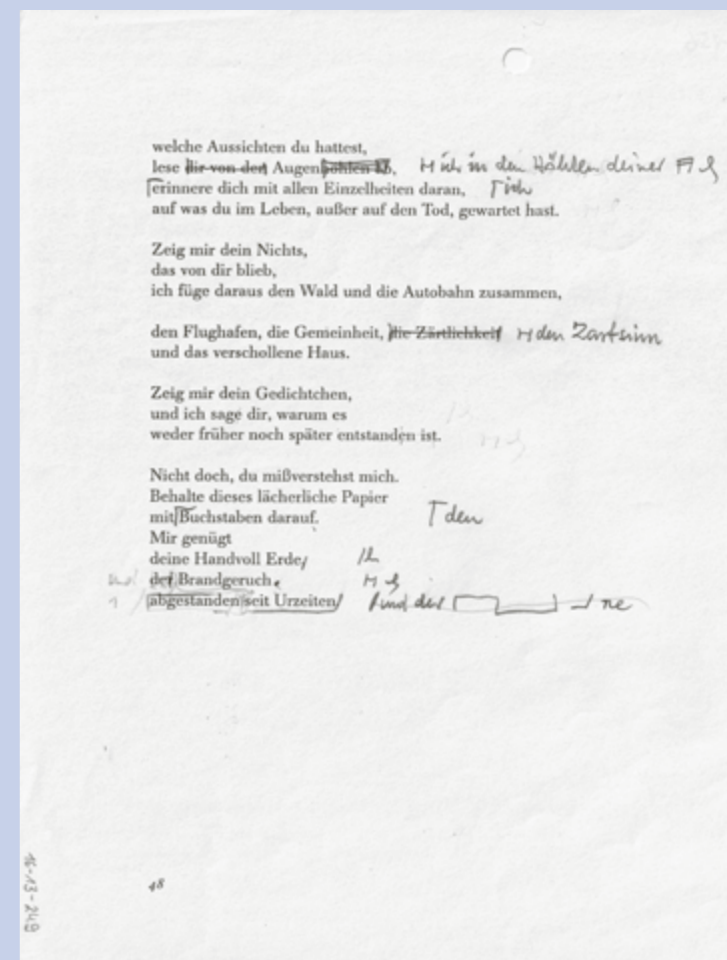 welche Aussichten du hattest,
lese dir von den Augenhöhlen ab, ich in den Höhlen deiner
erinnere dich mit allen Einzelheiten daran, ich
auf was du im Leben, außer auf den Tod, gewartet hast.
Zeig mir dein Nichts,
das von dir blieb,
ich füge daraus den Wald und die Autobahn zusammen,
den Flughafen, die Gemeinheit, die Zärtlichkeit den Zartsinn
und das verschollene Haus.
Zeig mir dein Gedichtchen,
und ich sage dir, warum es
weder früher noch später entstanden ist.
Nicht doch, du mißverstehst mich.
Behalte dieses lächerliche Papier
mit Buchstaben darauf. den
Mir genügt
deine Handvoll Erde
der Brandgeruch
abgestanden seit Urzeiten und der ne
48
16-13-249